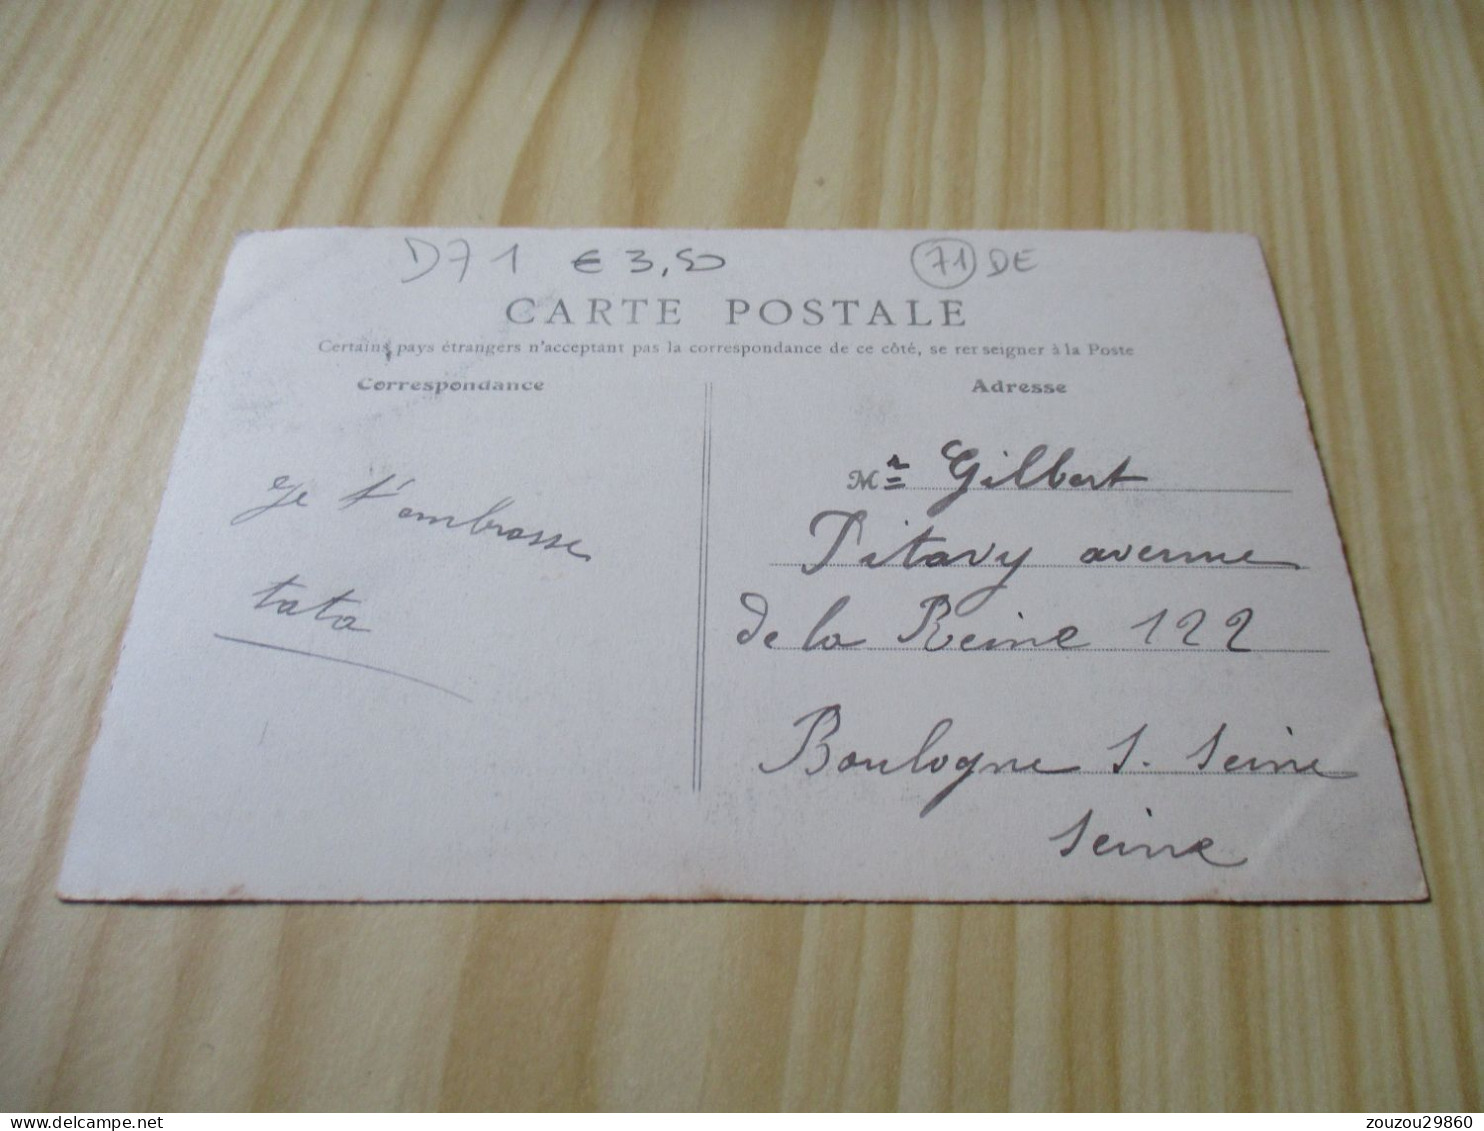 D71 € 3,50 71 DE
CARTE POSTALE
Certains pays étrangers n'acceptant pas la correspondance de ce côté, se renseigner à la Poste
Correspondance
Adresse
Je t'embrasse
tata
Mr Gilbert
Pitavy avenue
de la Reine 122
Boulogne S. Seine
Seine
zouzou29860